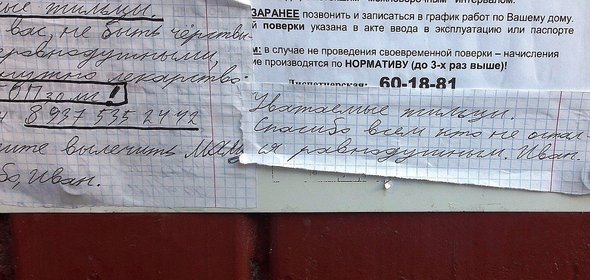 ые жильцы.
вас, не быть чёрстви
равнодушными,
нужно лекарство
!
8 937 535 24 42
ите вылечить Маму
бо, Иван.
ЗАРАНЕЕ позвонить и записаться в график работ по Вашему дому.
й поверки указана в акте ввода в эксплуатацию или паспорте
и: в случае не проведения своевременной поверки – начисления
ие производятся по НОРМАТИВУ (до 3-х раз выше)!
Диспетчерская: 60-18-81
Уважаемые жильцы.
Спасибо всем кто не остал-
ся равнодушным. Иван.